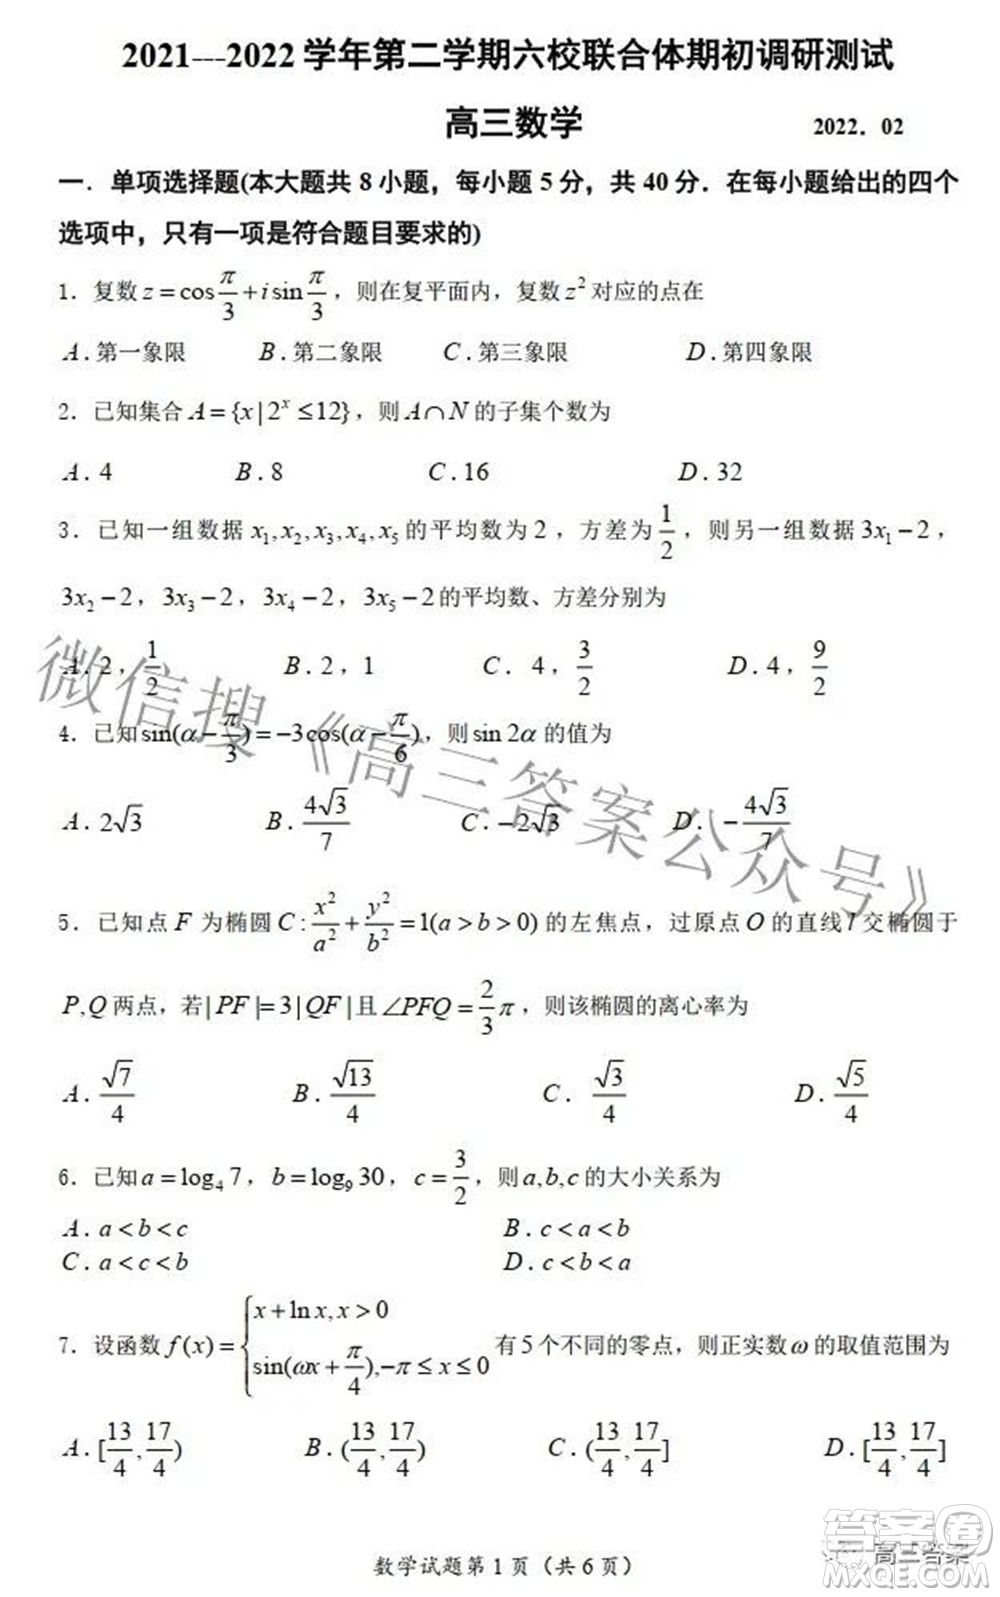 2021---2022 学年第二学期六校联合体期初调研测试
高三数学
2022. 02
一．单项选择题(本大题共 8 小题，每小题 5 分，共 40 分．在每小题给出的四个
选项中，只有一项是符合题目要求的)
1．复数 z = cos π/3 + i sin π/3，则在复平面内，复数 z² 对应的点在
A．第一象限 B．第二象限 C．第三象限 D．第四象限
2．已知集合 A = {x | 2ˣ ≤ 12}，则 A∩N 的子集个数为
A．4 B．8 C．16 D．32
3．已知一组数据 x₁, x₂, x₃, x₄, x₅ 的平均数为 2，方差为 1/2，则另一组数据 3x₁−2，
3x₂−2，3x₃−2，3x₄−2，3x₅−2 的平均数、方差分别为
A．2，1/2 B．2，1 C．4，3/2 D．4，9/2
4．已知 sin(α−π/3) = −3cos(α−π/6)，则 sin 2α 的值为
A．2√3 B．4√3/7 C．−2√3 D．−4√3/7
5．已知点 F 为椭圆 C : x²/a² + y²/b² = 1(a > b > 0) 的左焦点，过原点 O 的直线 l 交椭圆于
P, Q 两点，若 | PF |= 3 | QF | 且 ∠PFQ = 2/3 π，则该椭圆的离心率为
A．√7/4 B．√13/4 C．√3/4 D．√5/4
6．已知 a = log₄ 7，b = log₉ 30，c = 3/2，则 a, b, c 的大小关系为
A．a < b < c B．c < a < b
C．a < c < b D．c < b < a
7．设函数 f(x) = { x + ln x, x > 0
sin(ωx + π/4), −π ≤ x ≤ 0 有 5 个不同的零点，则正实数 ω 的取值范围为
A．[13/4, 17/4) B．(13/4, 17/4) C．(13/4, 17/4] D．[13/4, 17/4]
数学试题第 1 页（共 6 页）
微信搜《高三答案公众号》
答案圈
高三答案
MXQE.COM